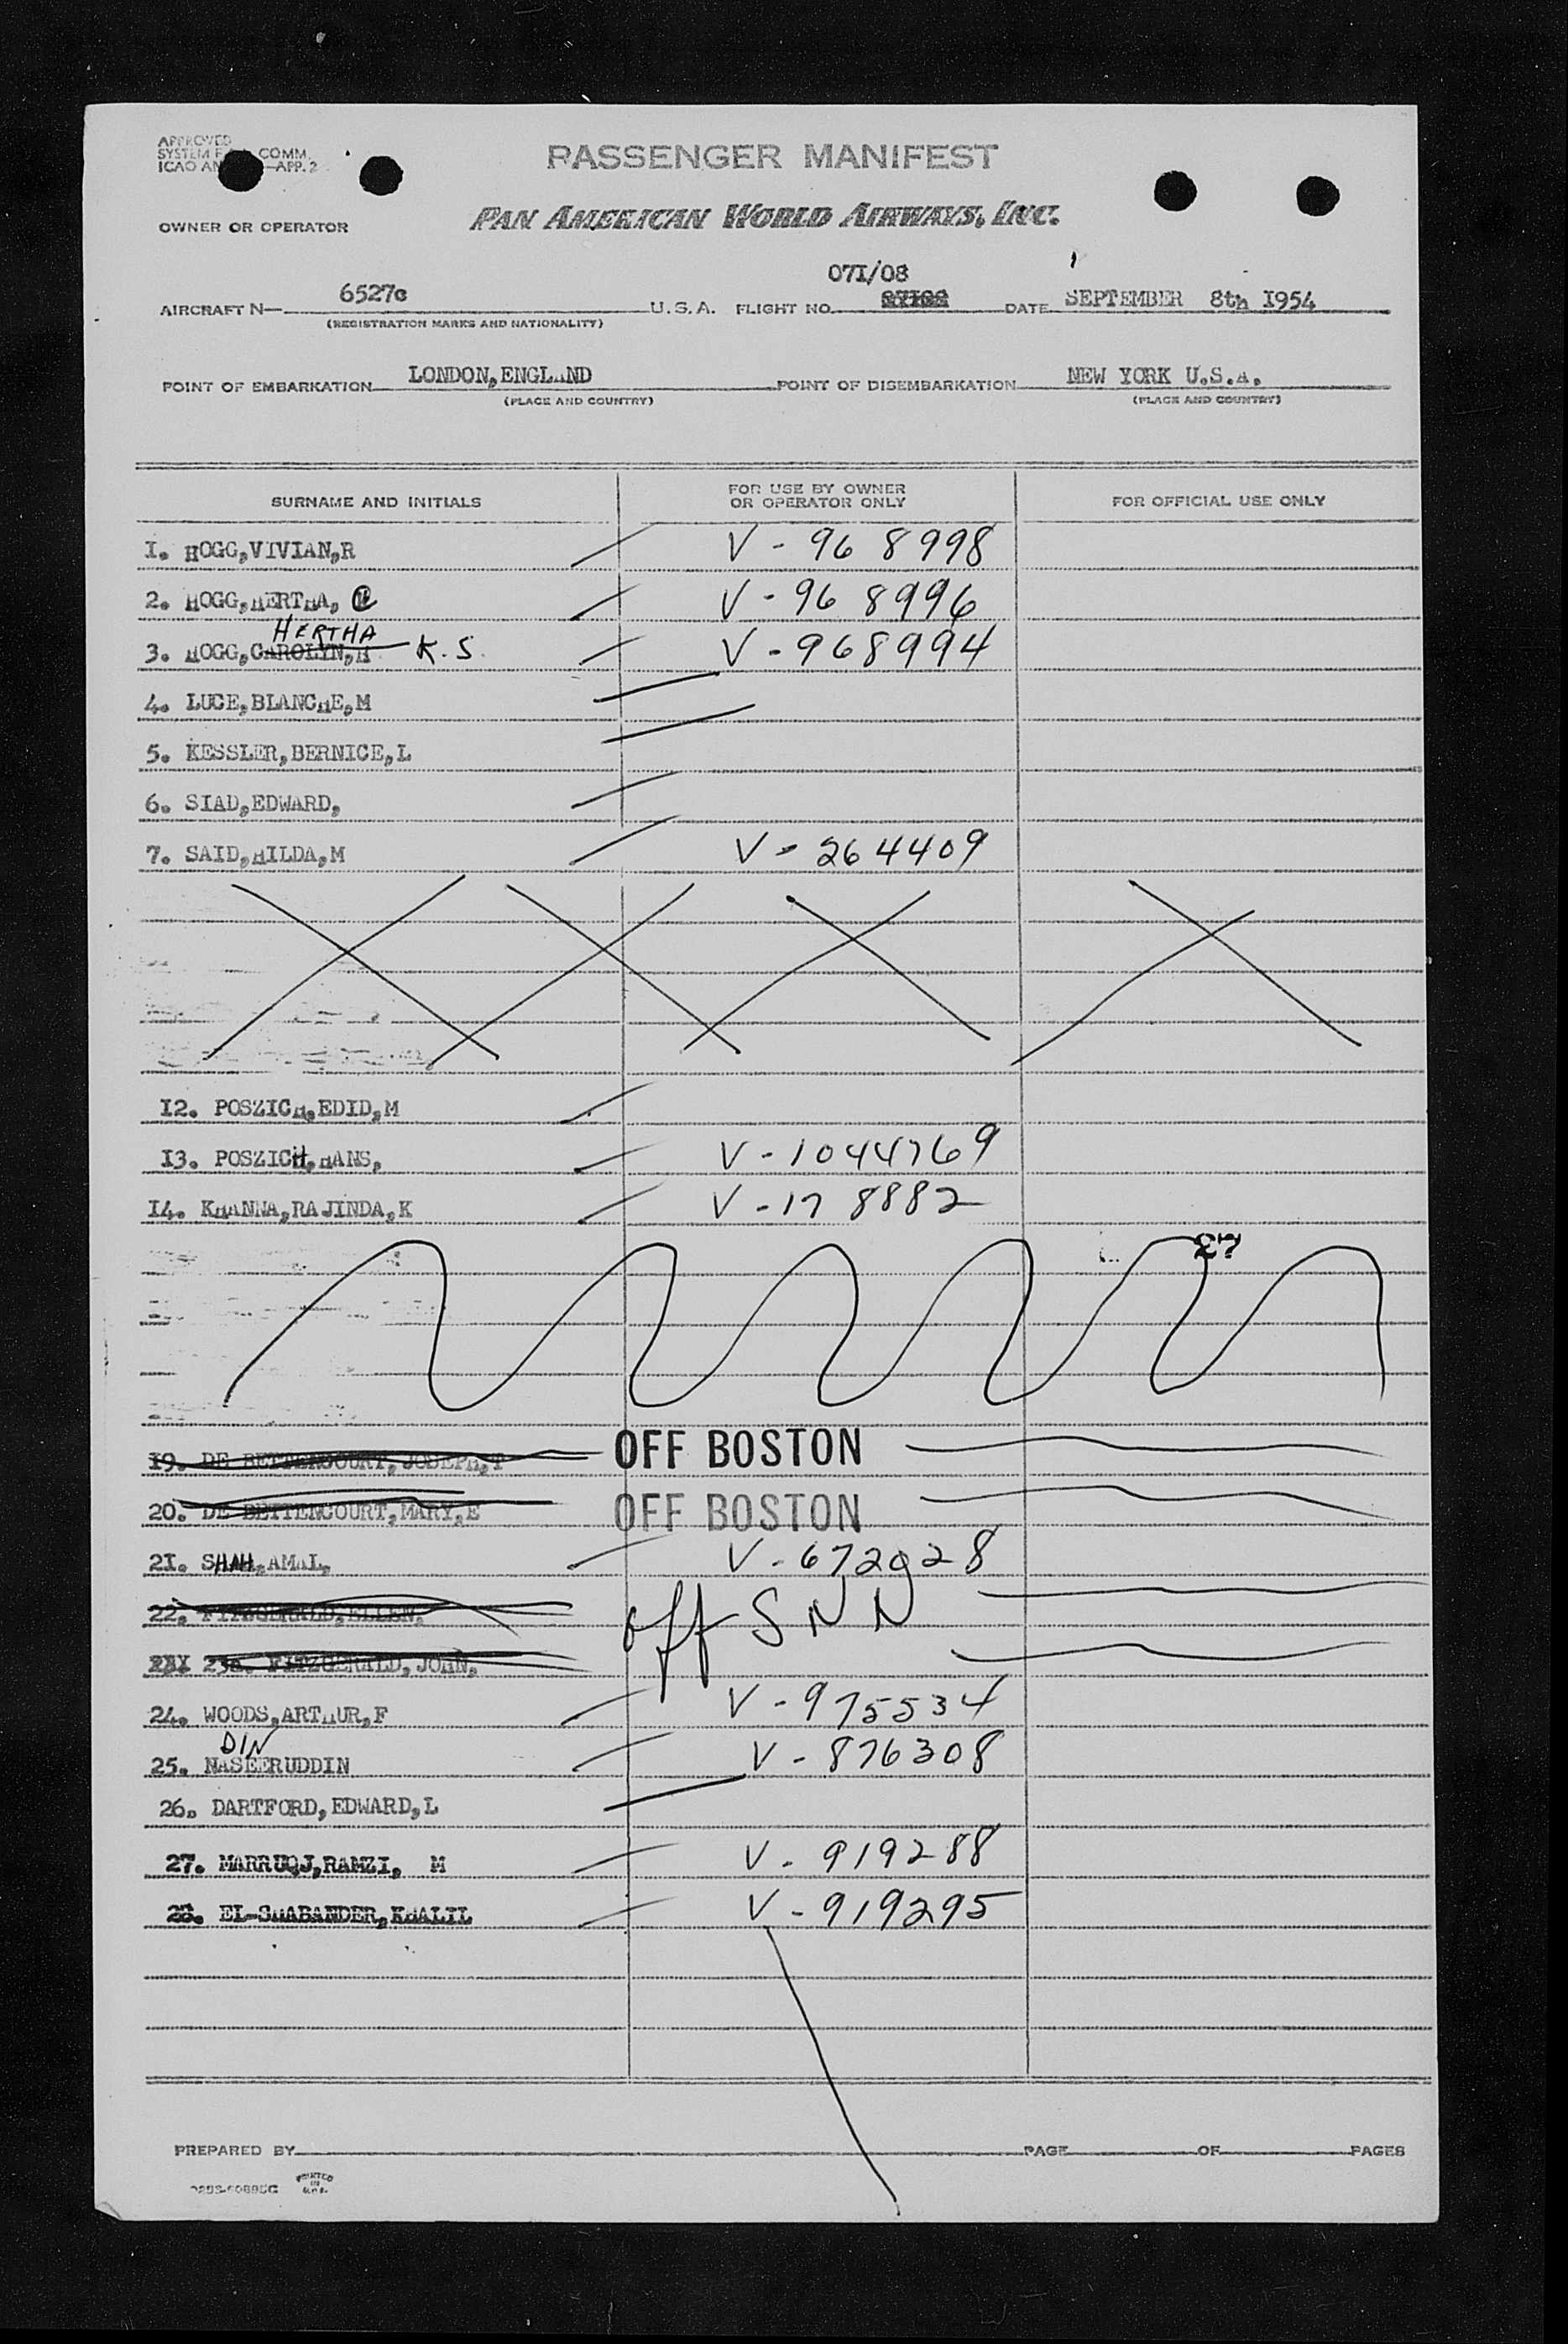 APPROVED
SYSTEM F COMM.
ICAO AN —APP. 2
PASSENGER MANIFEST
OWNER OR OPERATOR PAN AMERICAN WORLD AIRWAYS, INC.
071/08
AIRCRAFT N— 6527c U.S.A. FLIGHT NO. DATE SEPTEMBER 8th 1954
(REGISTRATION MARKS AND NATIONALITY)
POINT OF EMBARKATION LONDON,ENGLAND POINT OF DISEMBARKATION NEW YORK U.S.A.
(PLACE AND COUNTRY) (PLACE AND COUNTRY)
SURNAME AND INITIALS FOR USE BY OWNER OR OPERATOR ONLY FOR OFFICIAL USE ONLY
1. HOGG,VIVIAN,R V - 968998
2. HOGG,HERTHA, V - 968996
HERTHA
3. HOGG,CAROLYN,H K.S. V - 968994
4. LUCE,BLANCHE,M
5. KESSLER,BERNICE,L
6. SIAD,EDWARD,
7. SAID,HILDA,M V - 264409
12. POSZICH,EDID,M
13. POSZICH,HANS, V - 1044769
14. KHANNA,RAJINDA,K V - 178882
27
19. DE BETTENCOURT,JOSEPH,P OFF BOSTON
20. DE BETTENCOURT,MARY,E OFF BOSTON
21. SHAH,AMAL, V - 672928
22. FITZGERALD,ELLEN, off SNN
23. FITZGERALD,JOHN,
24. WOODS,ARTHUR,F V - 975534
DIN
25. NASEERUDDIN V - 876308
26. DARTFORD,EDWARD,L
27. MARRUQJ,RAMZI, M V - 919288
28. EL-SHABANDER,KHALIL V - 919295
PREPARED BY PAGE OF PAGES
PRINTED IN U.S.A.